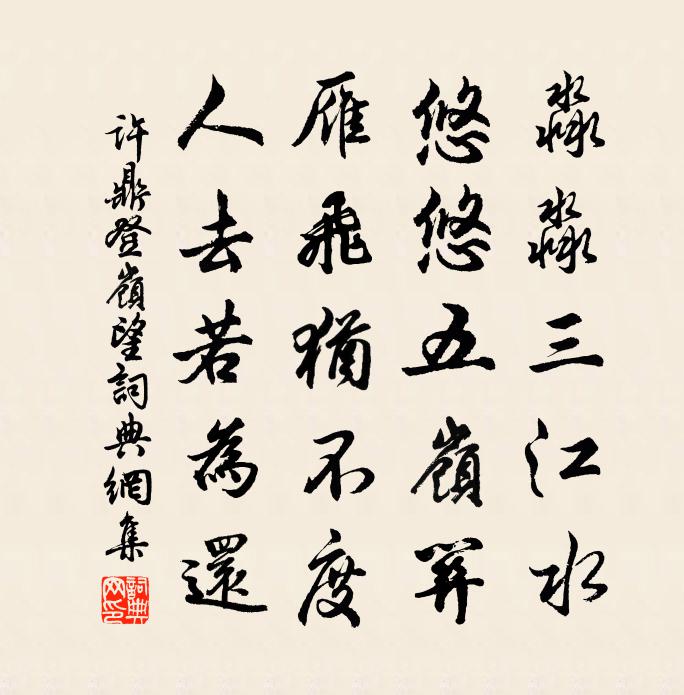 淼淼三江水
悠悠五嶺關
雁飛猶不度
人去若為還
許鼎登嶺望詞典網集
詞典网印